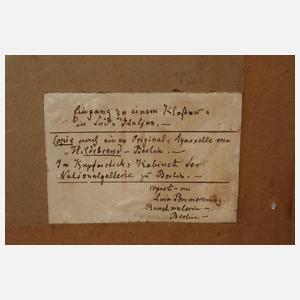 Eingang zu einem Kloster
in Süd-Italien. —
Copie nach einer Original-Aquarelle von
"Hildebrand – Berlin —
Im Kupferstich-Kabinet der
Nationalgallerie zu Berlin. —
copiert von
Kunstmalerin —
Berlin —